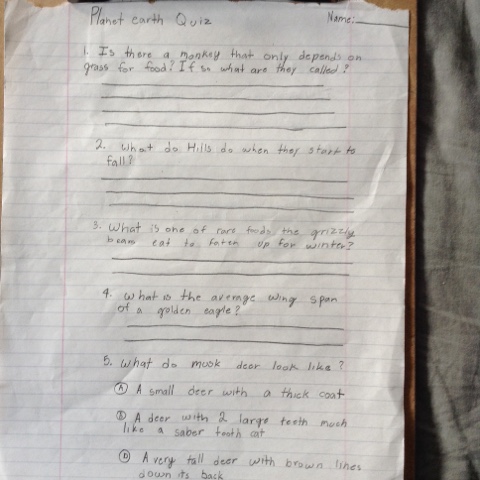 Planet earth Quiz
Name:
1. Is there a monkey that only depends on
grass for food? If so what are they called?
2. What do Hills do when they start to
fall?
3. What is one of rare foods the grizzly
bears eat to faten up for winter?
4. What is the average wing span
of a golden eagle?
5. What do musk deer look like?
A A small deer with a thick coat
B A deer with 2 large teeth much
like a saber tooth cat
D A very tall deer with brown lines
down its back